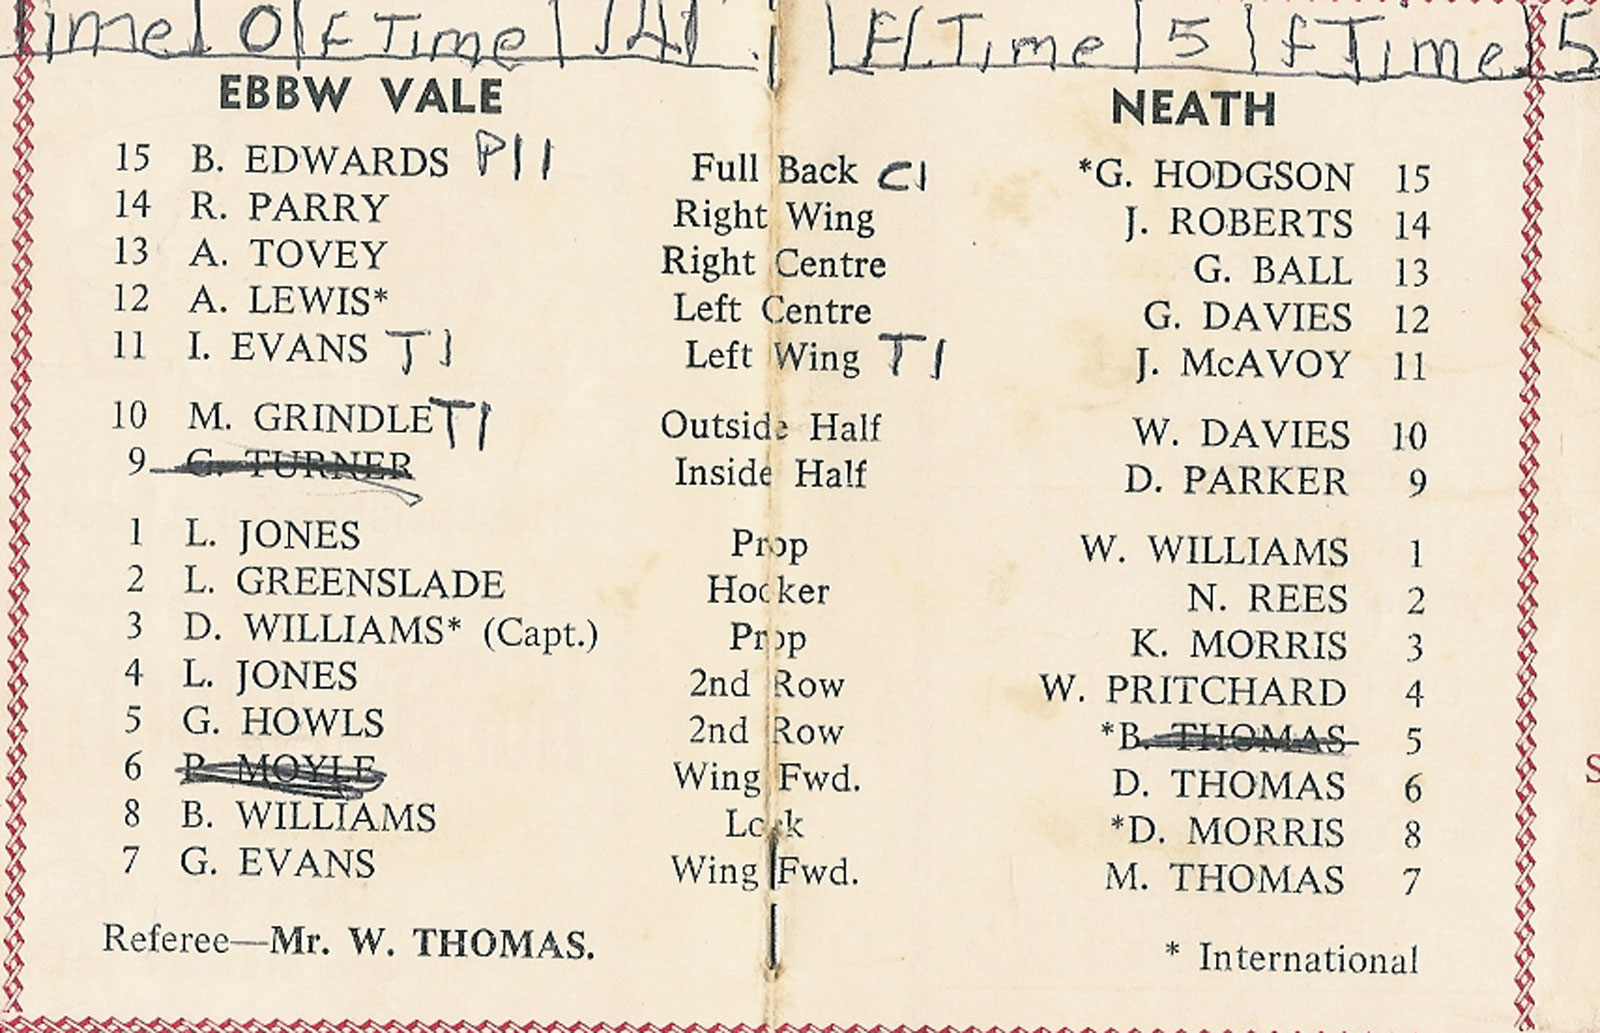 ime 0 f Time 14
H Time 5 f Time 5
EBBW VALE NEATH
15 B. EDWARDS P11 Full Back C1 *G. HODGSON 15
14 R. PARRY Right Wing J. ROBERTS 14
13 A. TOVEY Right Centre G. BALL 13
12 A. LEWIS* Left Centre G. DAVIES 12
11 I. EVANS T1 Left Wing T1 J. McAVOY 11
10 M. GRINDLE T1 Outside Half W. DAVIES 10
9 G. TURNER Inside Half D. PARKER 9
1 L. JONES Prop W. WILLIAMS 1
2 L. GREENSLADE Hooker N. REES 2
3 D. WILLIAMS* (Capt.) Prop K. MORRIS 3
4 L. JONES 2nd Row W. PRITCHARD 4
5 G. HOWLS 2nd Row *B. THOMAS 5
6 P. MOYLE Wing Fwd. D. THOMAS 6
8 B. WILLIAMS Lock *D. MORRIS 8
7 G. EVANS Wing Fwd. M. THOMAS 7
Referee—Mr. W. THOMAS. * International
S